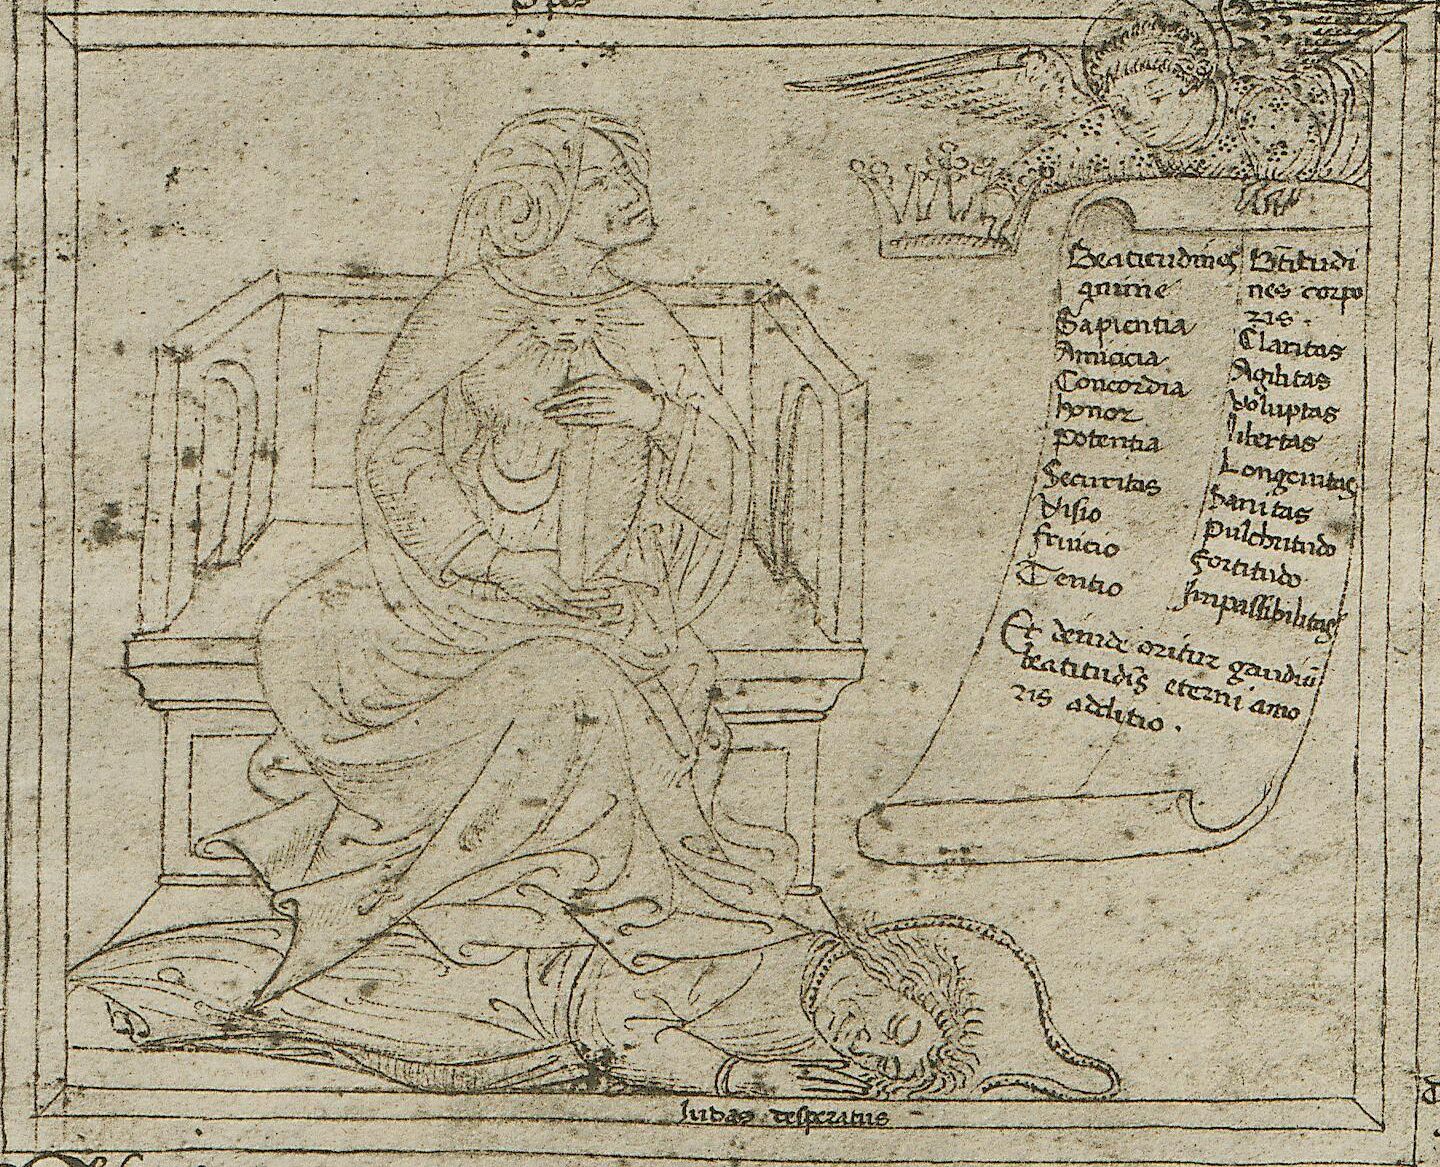 Spes
Beatitudines
anime
Sapientia
Amicicia
Concordia
honor
potentia
Securitas
Visio
fruicio
Tentio
Btitudi
nes corpo
ris.
Claritas
Agilitas
voluptas
libertas
Longevitas
Sanitas
pulchritudo
fortitudo
Impassibilitas
Et deinde oritur gaudiū
beatitudīs eterni amo
ris adeptio.
Iudas desperatus